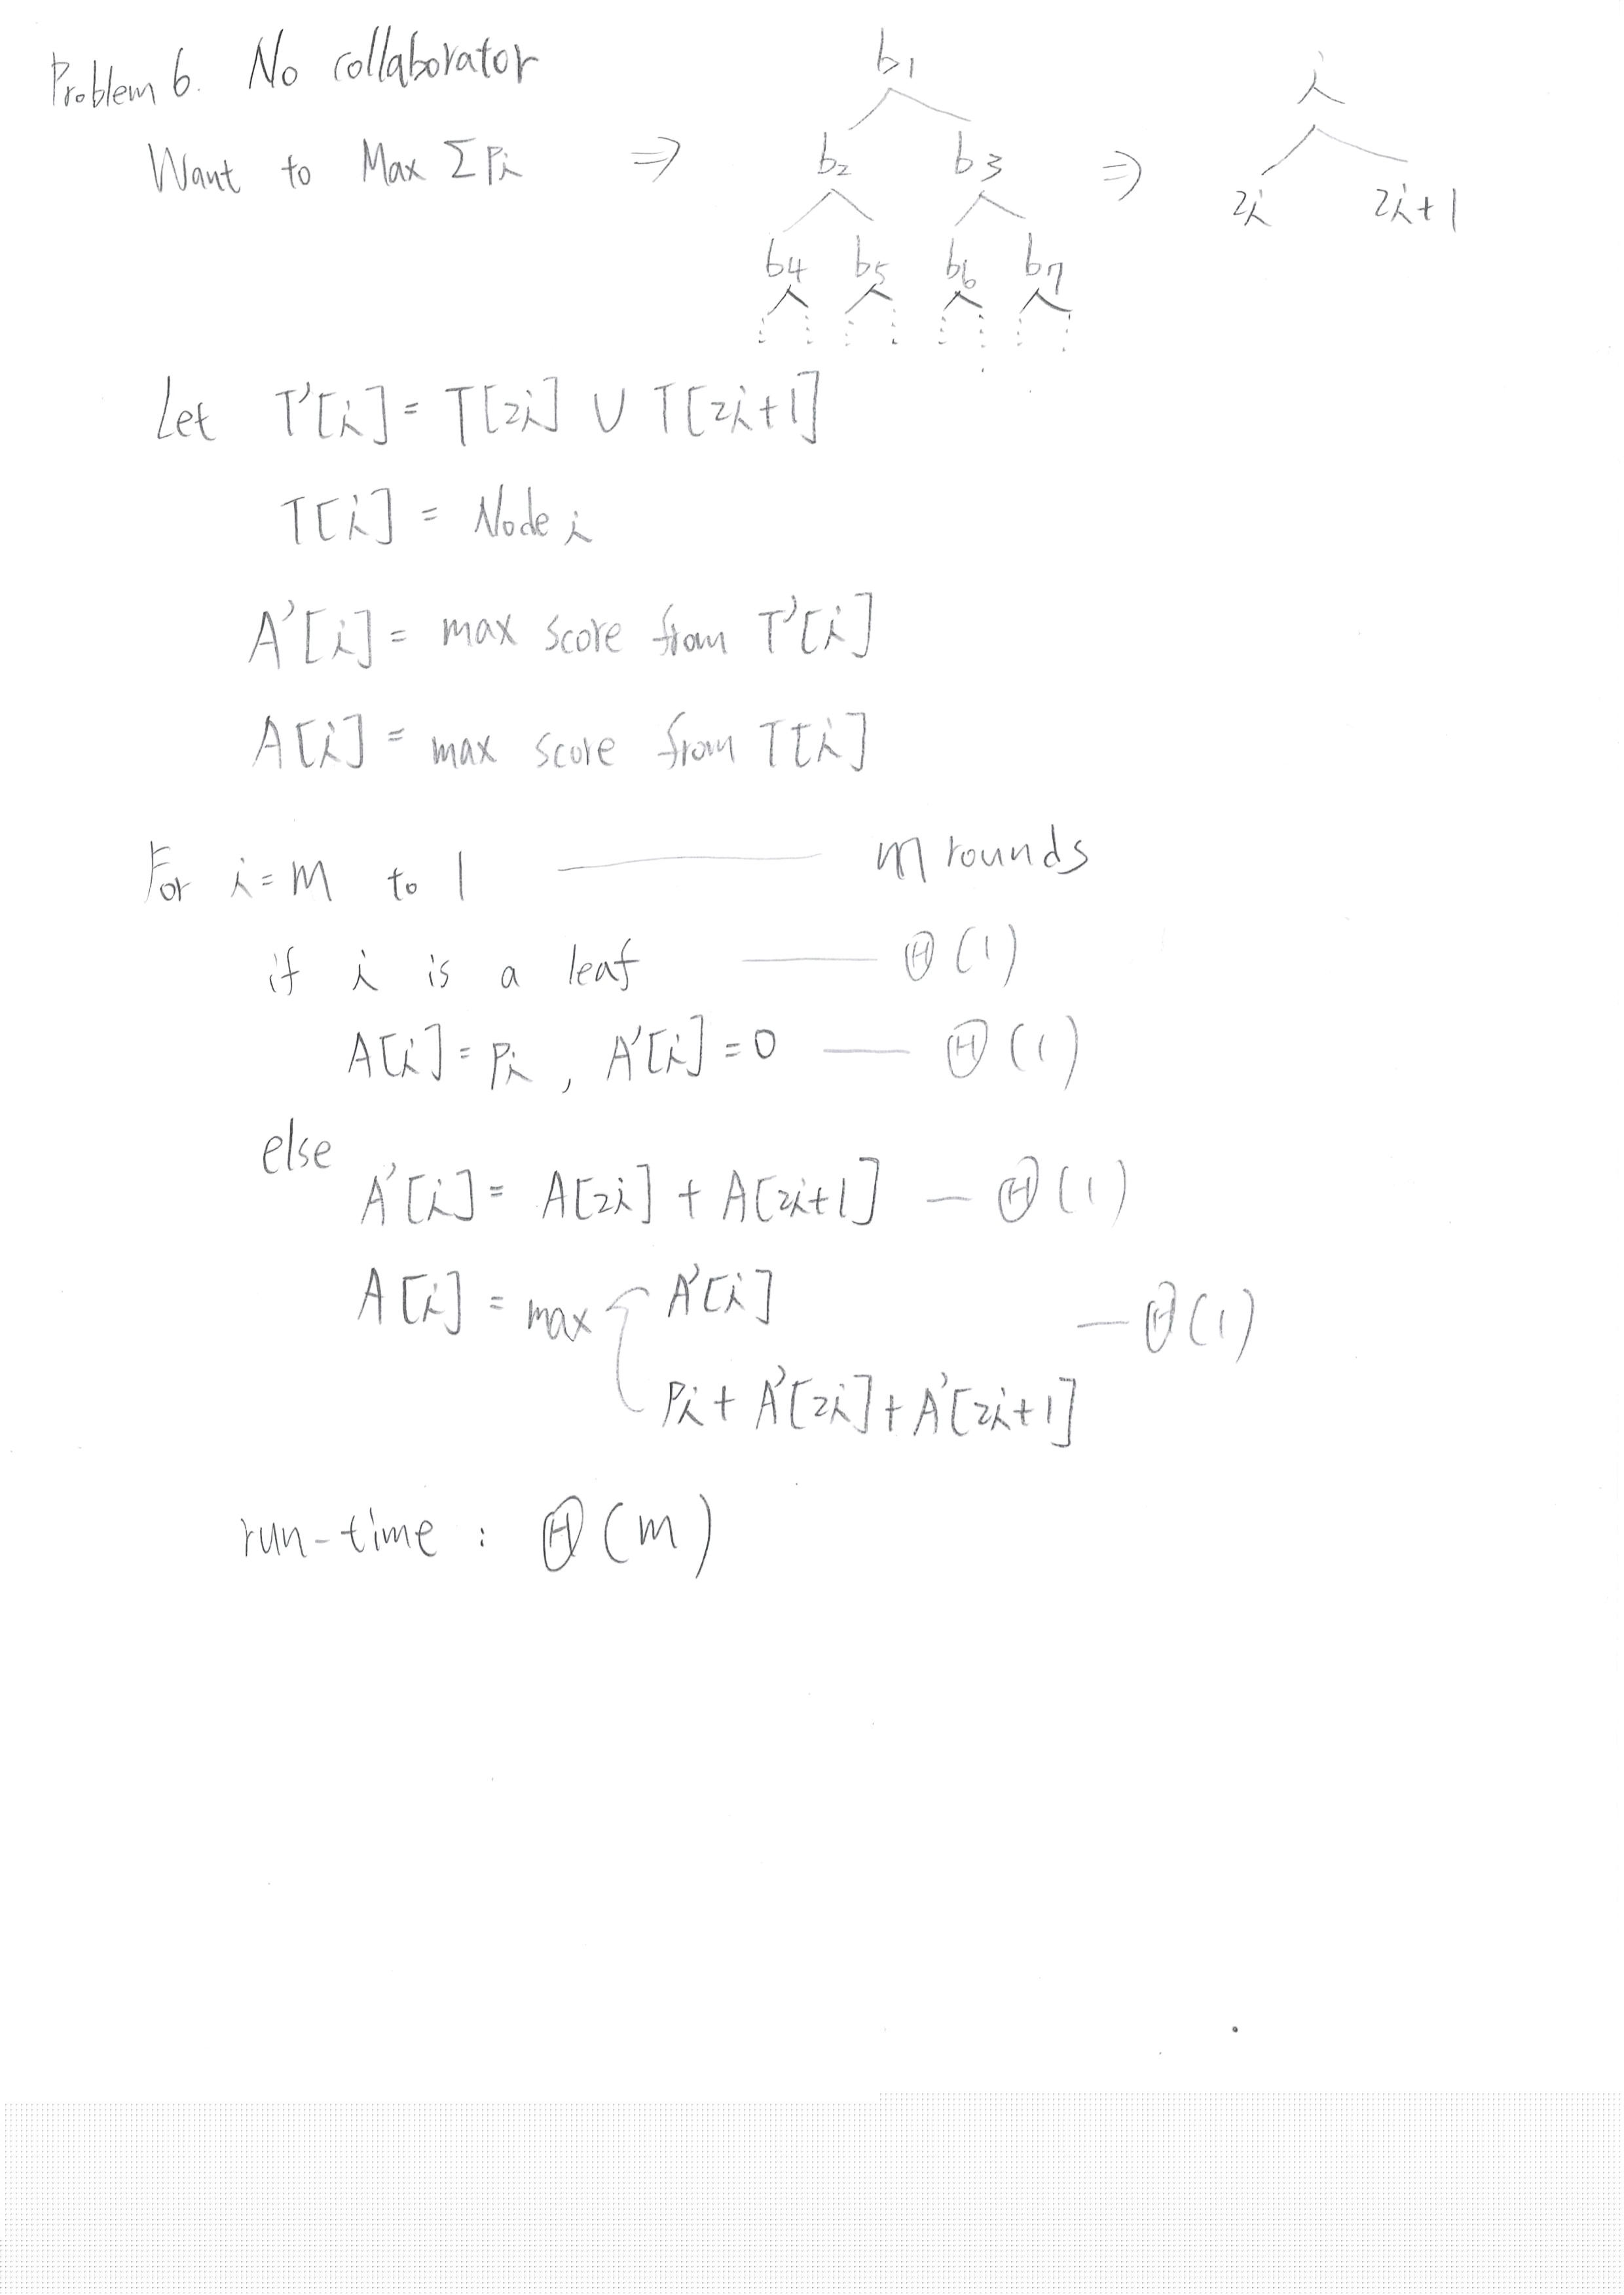 Problem 6. No collaborator
Want to Max Σ Pi ⇒
b1
b2 b3
b4 b5 b6 b7
⇒
i
2i 2i+1
Let T'[i] = T[2i] ∪ T[2i+1]
T[i] = Node i
A'[i] = max score from T'[i]
A[i] = max score from T[i]
For i = m to 1 — m rounds
if i is a leaf — Θ(1)
A[i] = Pi , A'[i] = 0 — Θ(1)
else
A'[i] = A[2i] + A[2i+1] — Θ(1)
A[i] = max { A'[i] — Θ(1)
Pi + A'[2i] + A'[2i+1]
run-time : Θ(m)